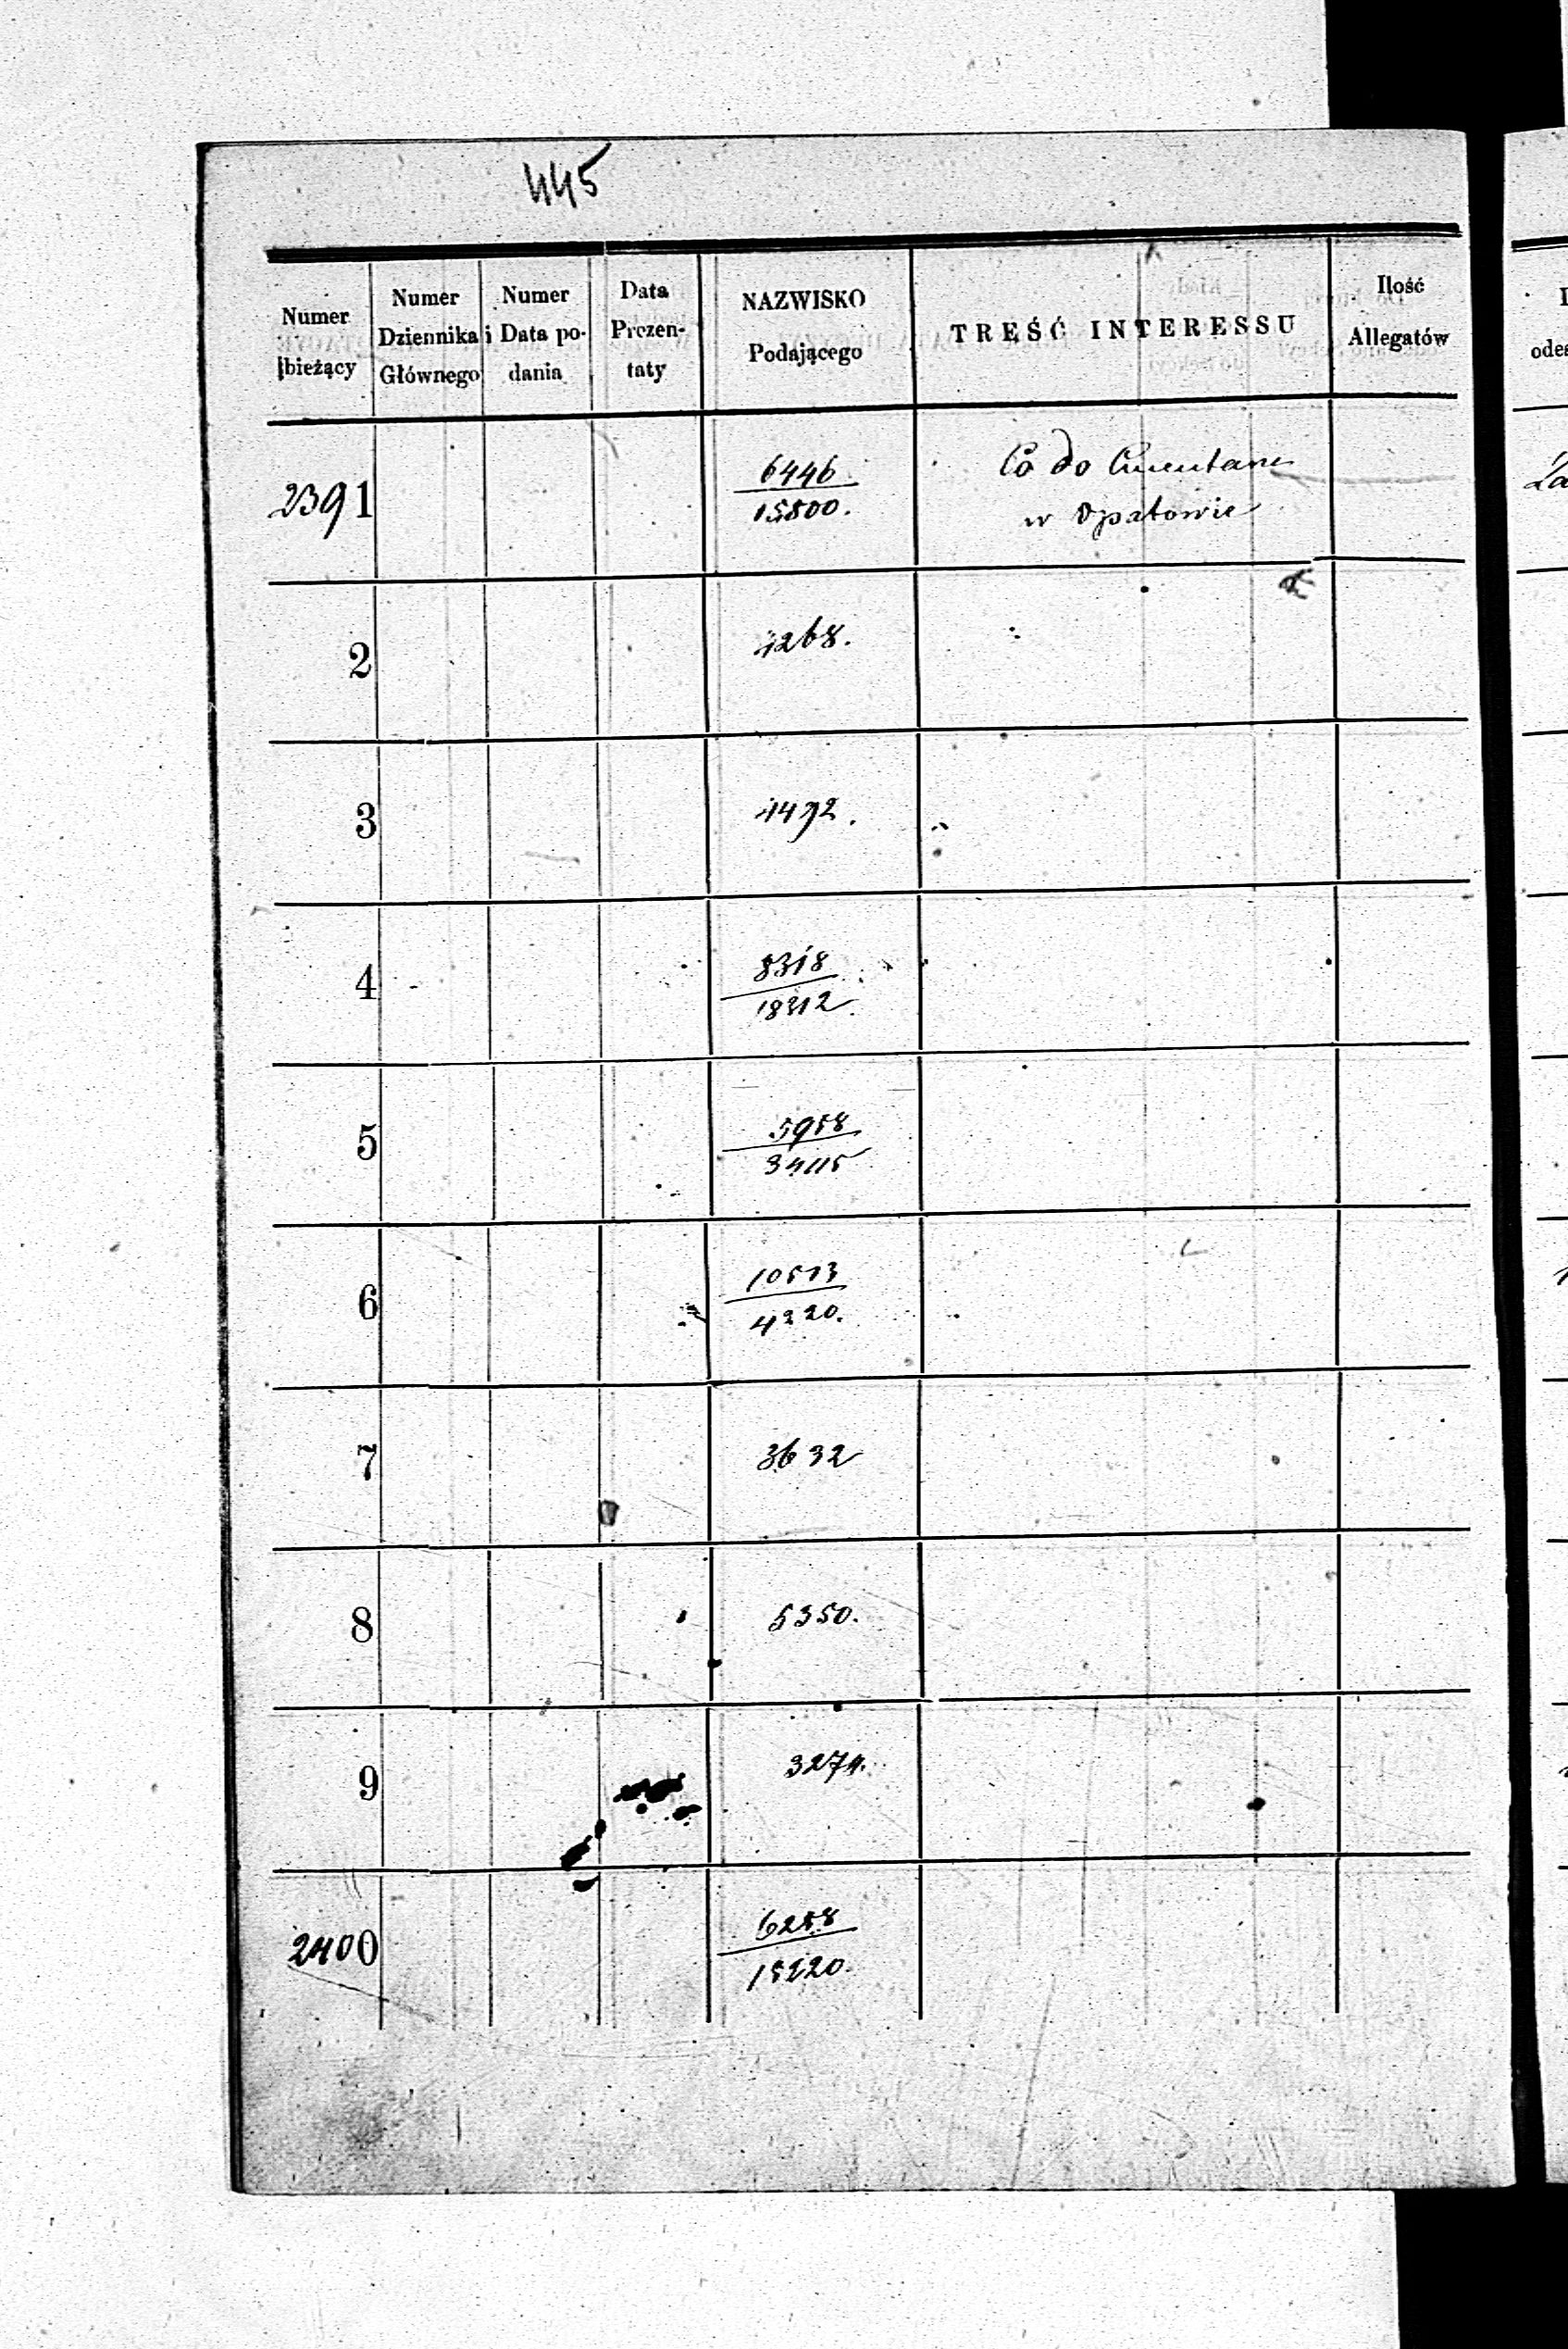 445
Numer bieżący
Numer Dziennika Głównego
Numer i Data po- dania
Data Prezen- taty
NAZWISKO Podającego
TREŚĆ INTERESSU
Ilość Allegatów
2391
6446
15800.
Co do Cmentarza
w Opatowie
2
1268.
3
1492.
4
8318
18212.
5
5958
34115
6
10513
4220.
7
3632
8
5350.
9
3274.
2400
6258
15220.